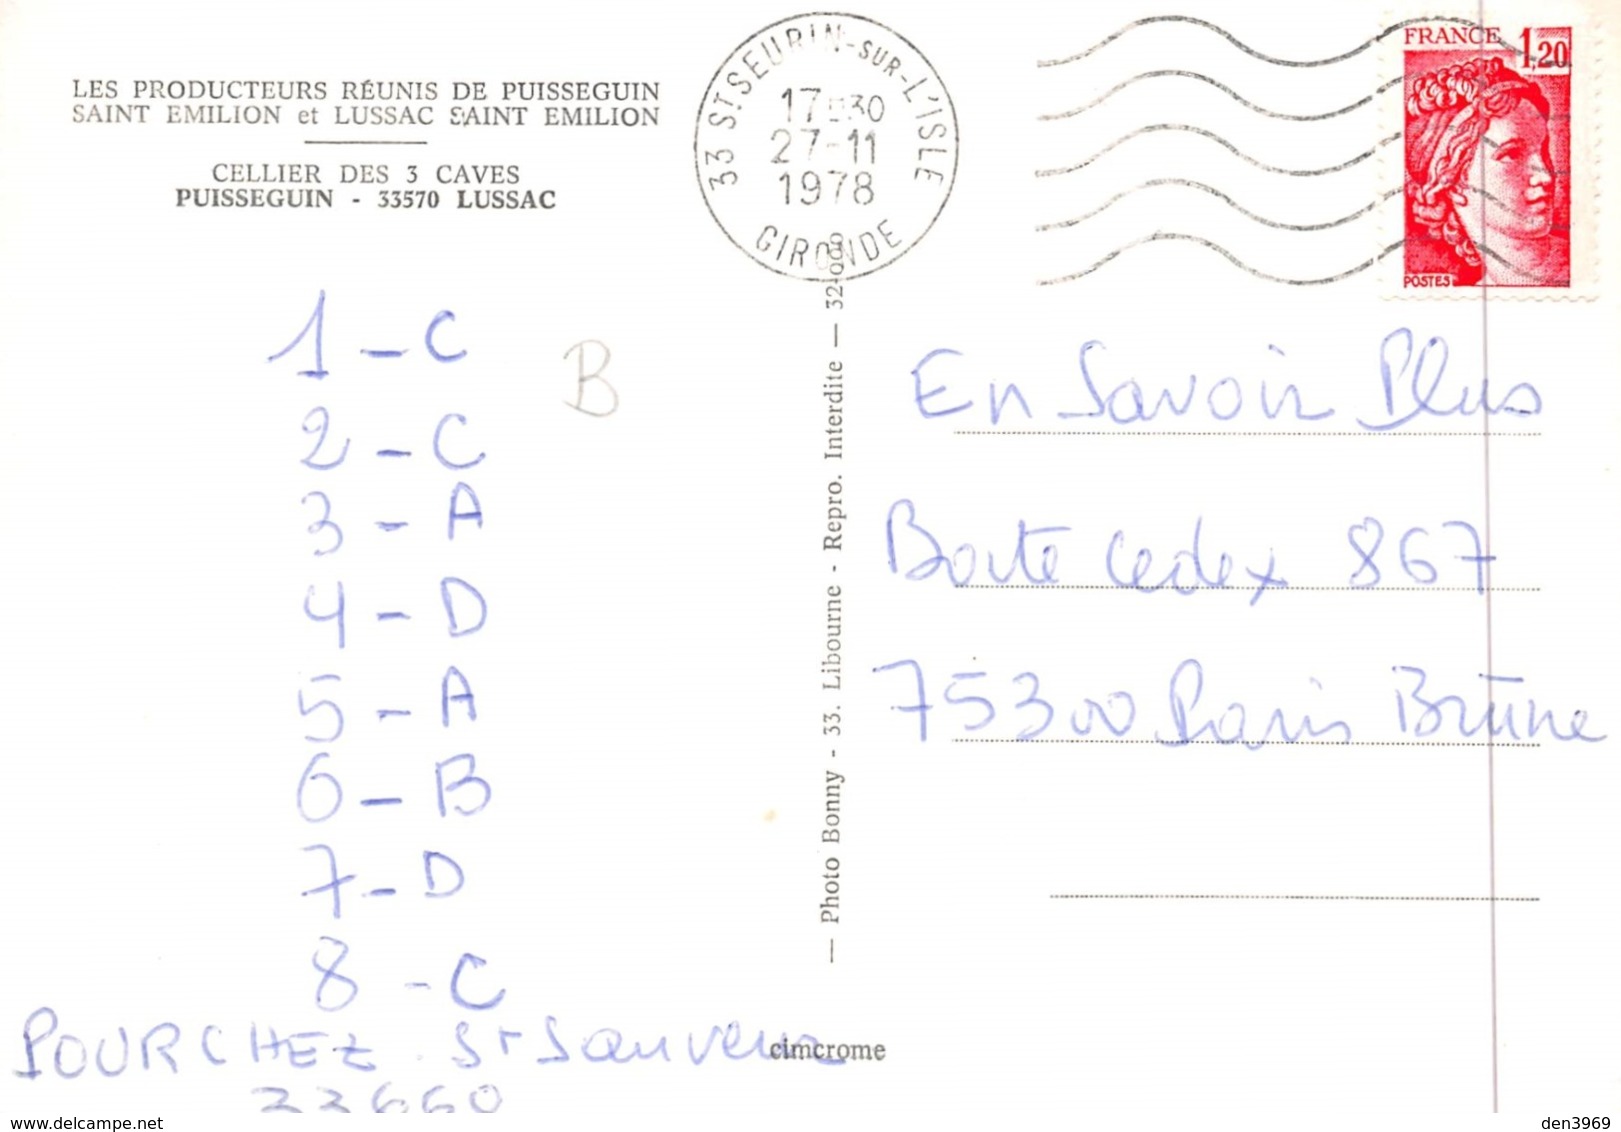 LES PRODUCTEURS RÉUNIS DE PUISSEGUIN
SAINT EMILION et LUSSAC SAINT EMILION
CELLIER DES 3 CAVES
PUISSEGUIN - 33570 LUSSAC
33 ST SEURIN-SUR-L'ISLE
17 30
27-11
1978
GIRONDE
FRANCE 1,20
POSTES
1 - C
B
2 - C
3 - A
4 - D
5 - A
6 - B
7 - D
8 - C
POURCHEZ St Sauveur
33660
— Photo Bonny - 33. Libourne - Repro. Interdite — 32
cimcrome
En Savoir Plus
Boite Cedex 867
75300 Paris Brüne
delcampe.net
den3969